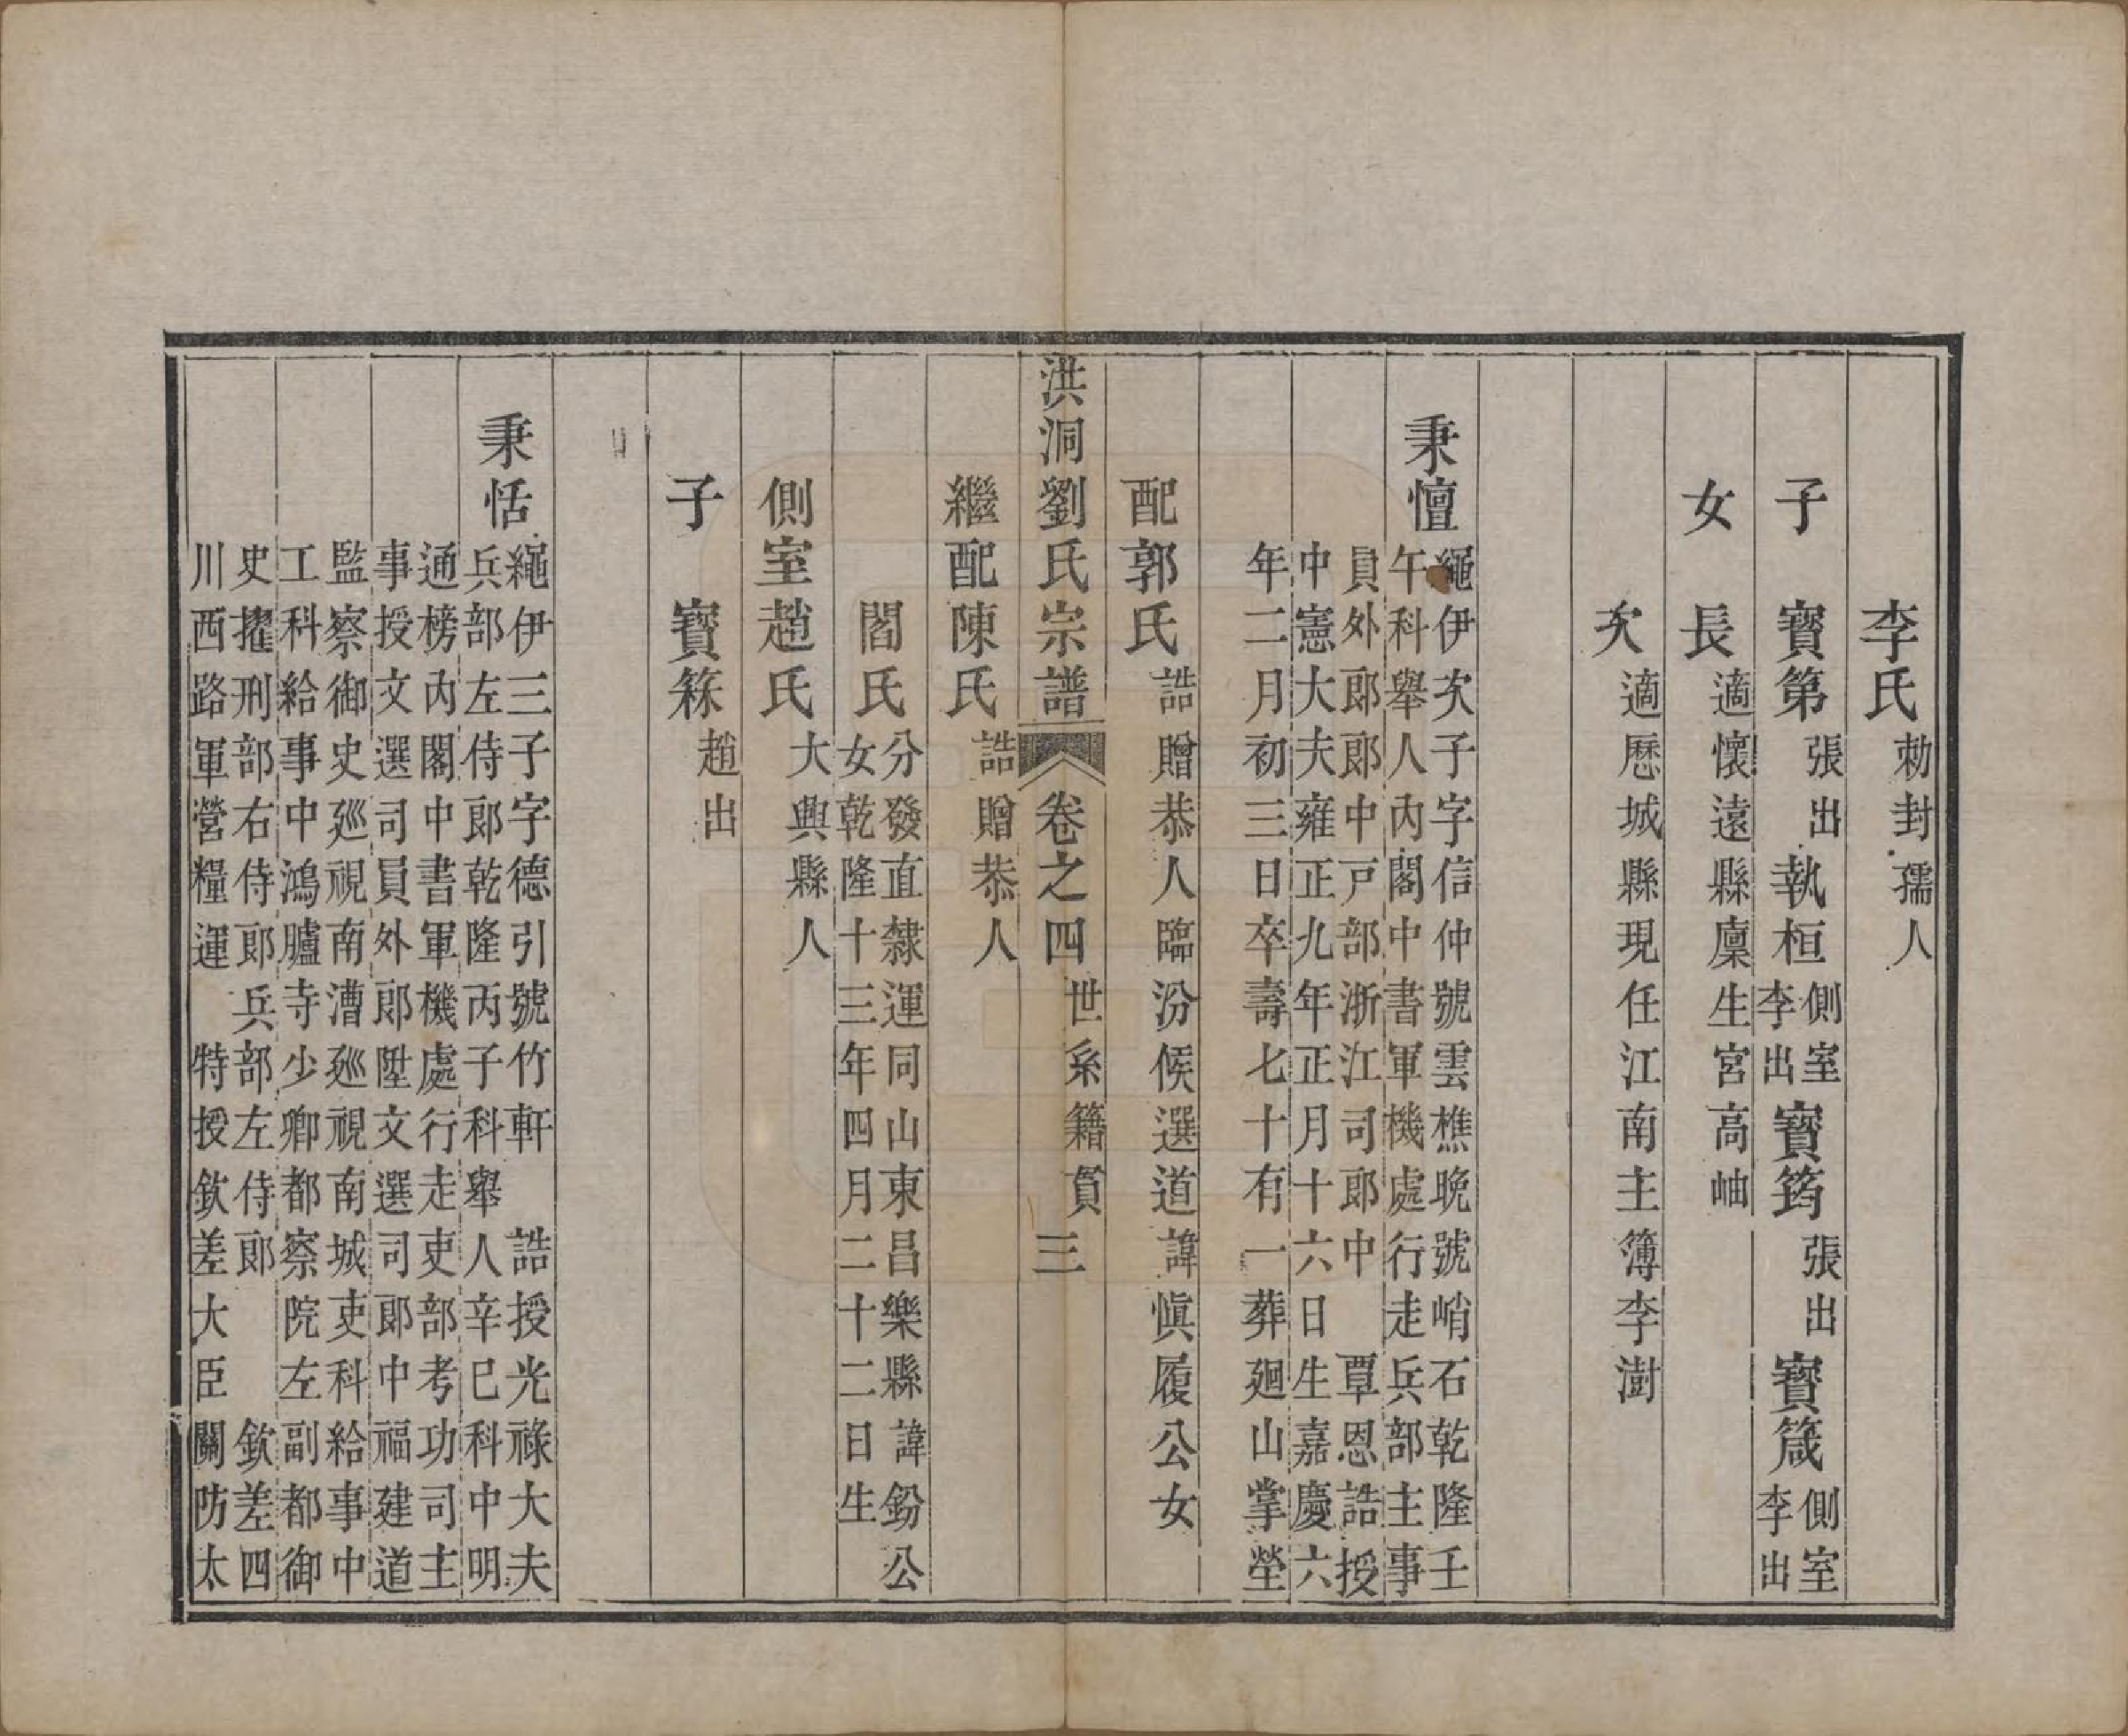 李氏勅封孺人
子 寶第張出執桓側室李出寶筠張出寶箴側室李出
女 長適懷遠縣廩生宮高岫
次適歷城縣現任江南主簿李澍
秉憻繩伊次子字信仲號雲樵晚號峭石乾隆壬
午科舉人內閣中書軍機處行走兵部主事
員外郎郎中戸部浙江司郎中 覃恩誥授
中憲大夫雍正九年正月十六日生嘉慶六
年二月初三日卒壽七十有一葬廻山掌塋
配郭氏誥贈恭人臨汾候選道諱愼履公女
洪洞劉氏宗譜 卷之四 世系籍貫 三
繼配陳氏誥贈恭人
閻氏分發直隸運同山東昌樂縣諱鈖公
女乾隆十三年四月二十二日生
側室趙氏大興縣人
子 寶箖趙出
秉恬繩伊三子字德引號竹軒 誥授光祿大夫
兵部左侍郎乾隆丙子科舉人辛巳科中明
通榜內閣中書軍機處行走吏部考功司主
事授文選司員外郎陞文選司郎中福建道
監察御史廵視南漕廵視南城吏科給事中
工科給事中鴻臚寺少卿都察院左副都御
史擢刑部右侍郎兵部左侍郎 欽差四
川西路軍營糧運 特授欽差大臣關防太